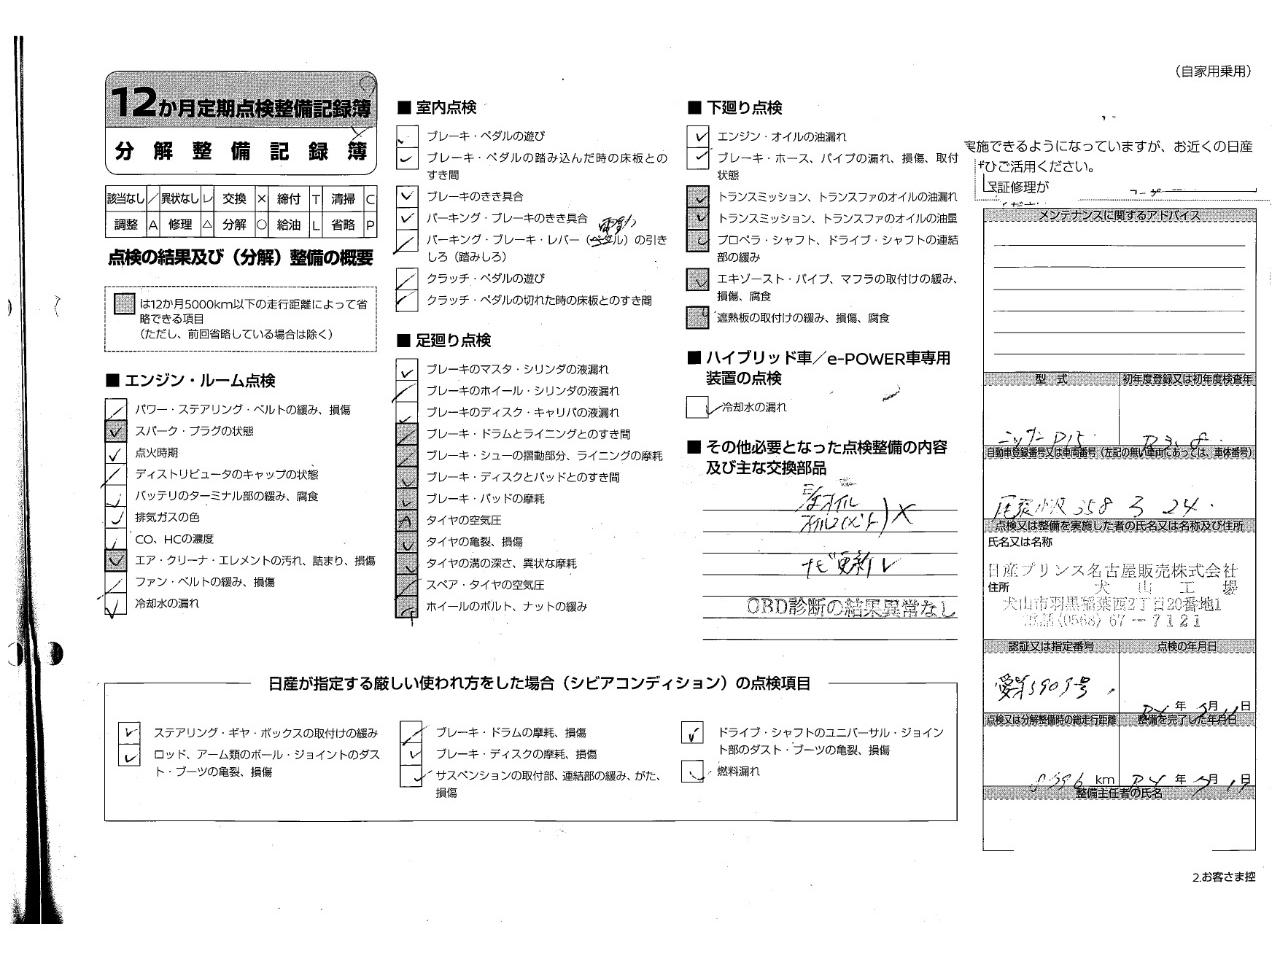 (自家用乗用)
12か月定期点検整備記録簿
分解整備記録簿
該当なし / 異状なし レ 交換 × 締付 T 清掃 C
調整 A 修理 △ 分解 ○ 給油 L 省略 P
点検の結果及び(分解)整備の概要
は12か月5000km以下の走行距離によって省
略できる項目
(ただし、前回省略している場合は除く)
■ エンジン・ルーム点検
パワー・ステアリング・ベルトの緩み、損傷
スパーク・プラグの状態
点火時期
ディストリビュータのキャップの状態
バッテリのターミナル部の緩み、腐食
排気ガスの色
CO、HCの濃度
エア・クリーナ・エレメントの汚れ、詰まり、損傷
ファン・ベルトの緩み、損傷
冷却水の漏れ
■ 室内点検
ブレーキ・ペダルの遊び
ブレーキ・ペダルの踏み込んだ時の床板との
すき間
ブレーキのきき具合
パーキング・ブレーキのきき具合
電動
パーキング・ブレーキ・レバー(ペダル)の引き
しろ(踏みしろ)
クラッチ・ペダルの遊び
クラッチ・ペダルの切れた時の床板とのすき間
■ 足廻り点検
ブレーキのマスタ・シリンダの液漏れ
ブレーキのホイール・シリンダの液漏れ
ブレーキのディスク・キャリパの液漏れ
ブレーキ・ドラムとライニングとのすき間
ブレーキ・シューの摺動部分、ライニングの摩耗
ブレーキ・ディスクとパッドとのすき間
ブレーキ・パッドの摩耗
タイヤの空気圧
タイヤの亀裂、損傷
タイヤの溝の深さ、異状な摩耗
スペア・タイヤの空気圧
ホイールのボルト、ナットの緩み
■ 下廻り点検
エンジン・オイルの油漏れ
ブレーキ・ホース、パイプの漏れ、損傷、取付
状態
トランスミッション、トランスファのオイルの油漏れ
トランスミッション、トランスファのオイルの油量
プロペラ・シャフト、ドライブ・シャフトの連結
部の緩み
エキゾースト・パイプ、マフラの取付けの緩み、
損傷、腐食
遮熱板の取付けの緩み、損傷、腐食
■ ハイブリッド車/e-POWER車専用
装置の点検
冷却水の漏れ
■ その他必要となった点検整備の内容
及び主な交換部品
オイル
ナビ更新 レ
OBD診断の結果異常なし
実施できるようになっていますが、お近くの日産
ぜひご活用ください。
保証修理が
メンテナンスに関するアドバイス
型 式 初年度登録又は初年度検査年
ニッサン D15 R3.8
自動車登録番号又は車両番号(左記の無い車両にあっては、車体番号)
尾張小牧 358 3 24
点検又は整備を実施した者の氏名又は名称及び住所
氏名又は名称
日産プリンス名古屋販売株式会社
住所 犬 山 工 場
犬山市羽黒稲葉西2丁目20番地1
電話(0568)67-7121
認証又は指定番号 点検の年月日
愛第5909号 R4 年 月 11 日
点検又は分解整備時の総走行距離 整備を完了した年月日
km R4 年 月 11 日
整備主任者の氏名
日産が指定する厳しい使われ方をした場合(シビアコンディション)の点検項目
ステアリング・ギヤ・ボックスの取付けの緩み
ロッド、アーム類のボール・ジョイントのダス
ト・ブーツの亀裂、損傷
ブレーキ・ドラムの摩耗、損傷
ブレーキ・ディスクの摩耗、損傷
サスペンションの取付部、連結部の緩み、がた、
損傷
ドライブ・シャフトのユニバーサル・ジョイン
ト部のダスト・ブーツの亀裂、損傷
燃料漏れ
2.お客さま控